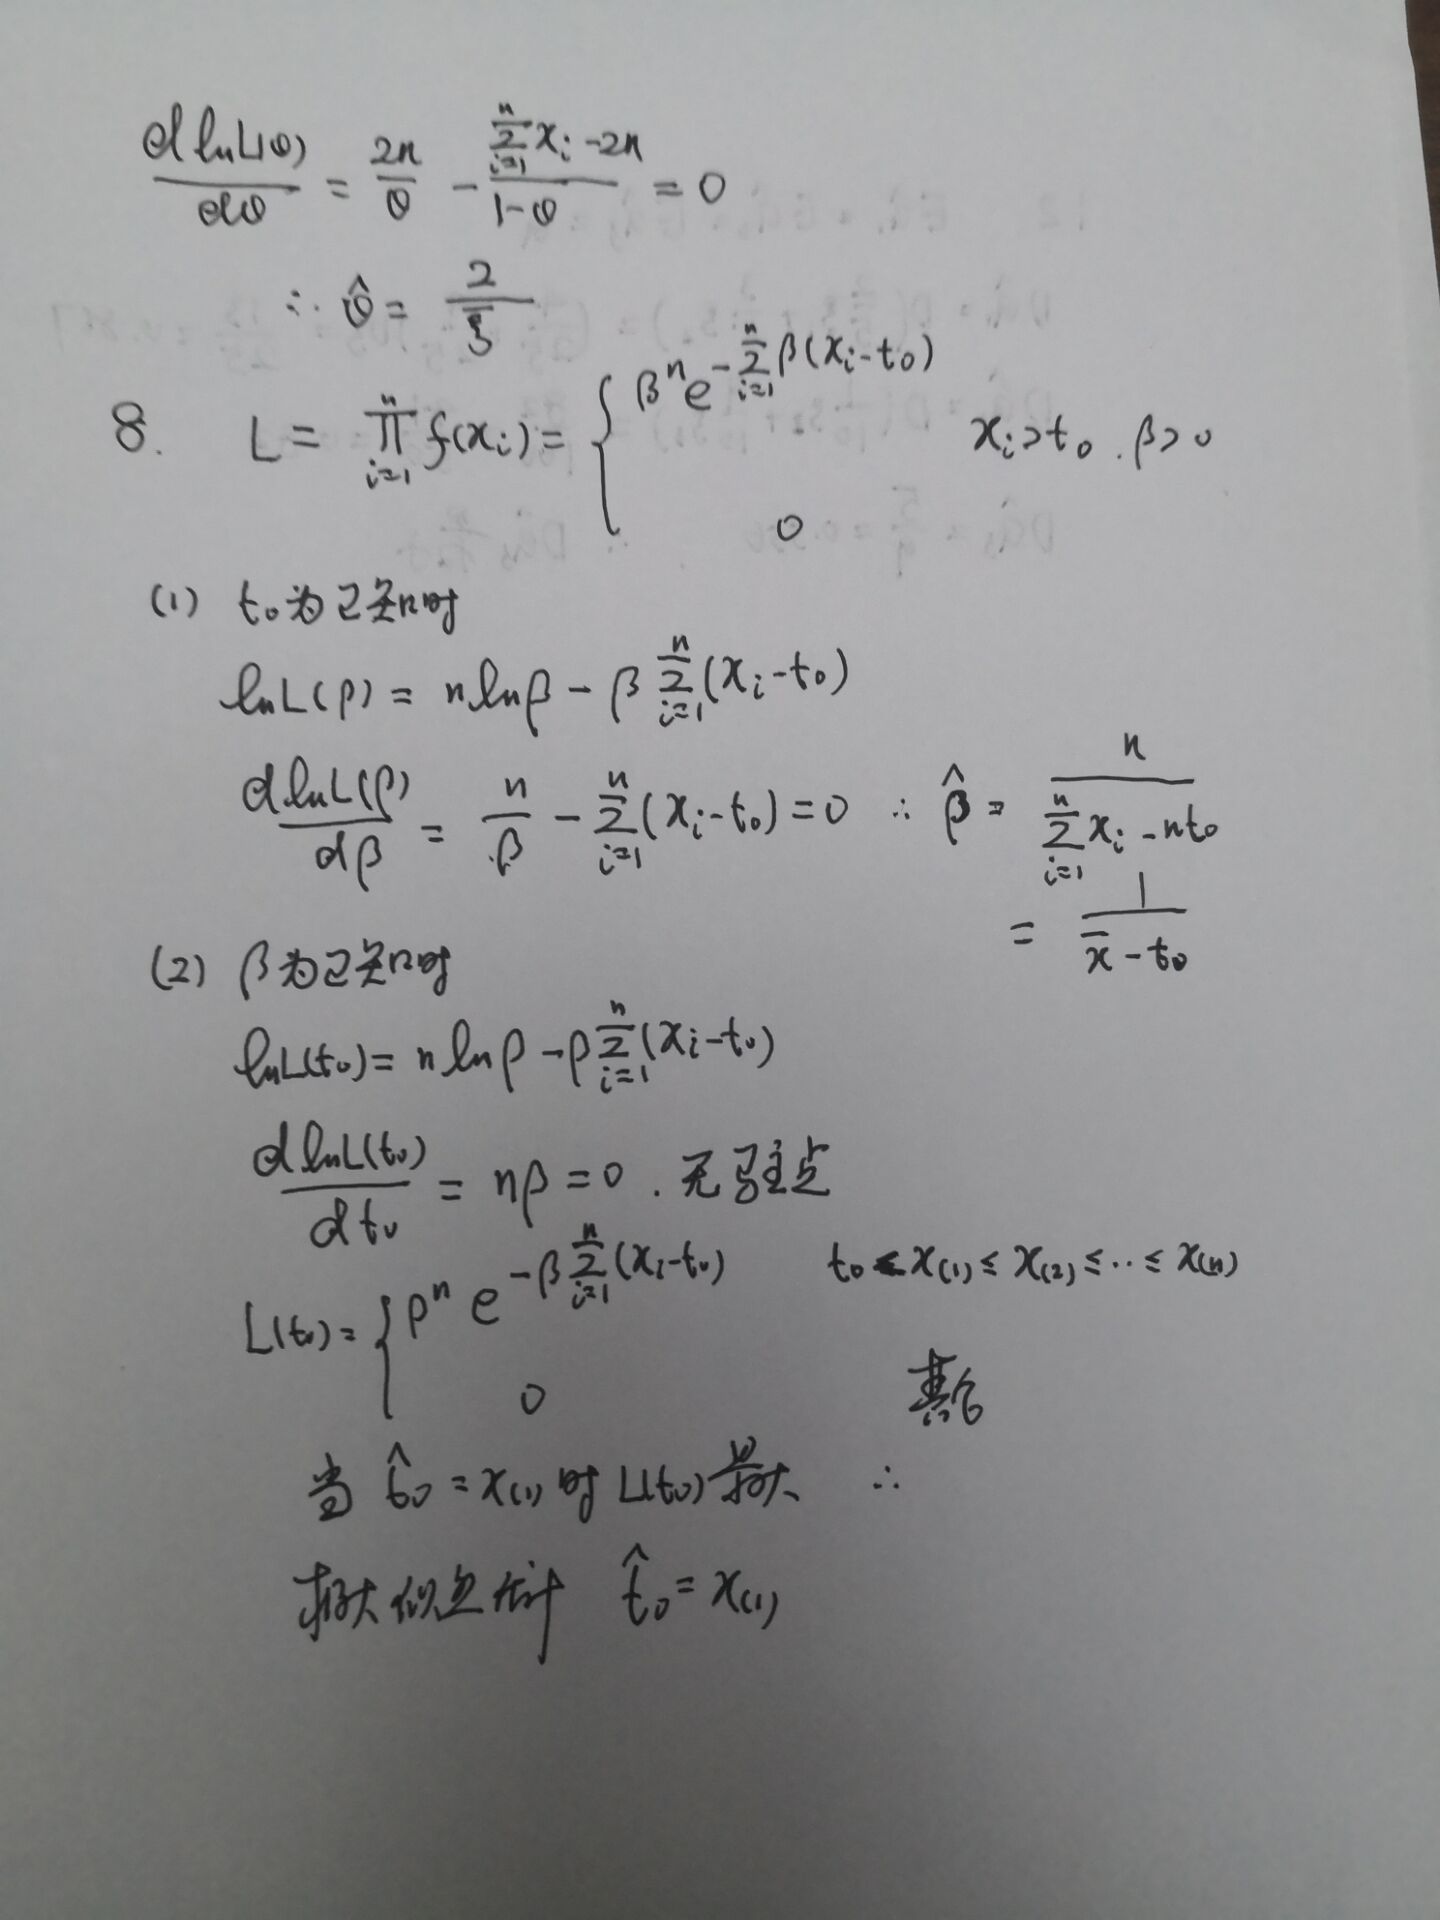 d ln L(θ) / dθ = 2n/θ - (∑_{i=1}^{n} x_i - 2n)/(1-θ) = 0
∴ θ̂ = 2/x̄
8. L = ∏_{i=1}^{n} f(x_i) = { β^n e^{-∑_{i=1}^{n} β(x_i - t_0)} x_i > t_0 . β > 0
0
(1) t_0 为已知时
ln L(β) = n ln β - β ∑_{i=1}^{n} (x_i - t_0)
d ln L(β) / dβ = n/β - ∑_{i=1}^{n} (x_i - t_0) = 0 ∴ β̂ = n / (∑_{i=1}^{n} x_i - n t_0)
= 1 / (x̄ - t_0)
(2) β 为已知时
ln L(t_0) = n ln β - β ∑_{i=1}^{n} (x_i - t_0)
d ln L(t_0) / d t_0 = nβ = 0 . 无驻点
L(t_0) = { β^n e^{-β ∑_{i=1}^{n} (x_i - t_0)} t_0 ≤ x_(1) ≤ x_(2) ≤ ‥ ≤ x_(n)
0 其它
当 t̂_0 = x_(1) 时 L(t_0) 最大 ∴
极大似然估计 t̂_0 = x_(1)